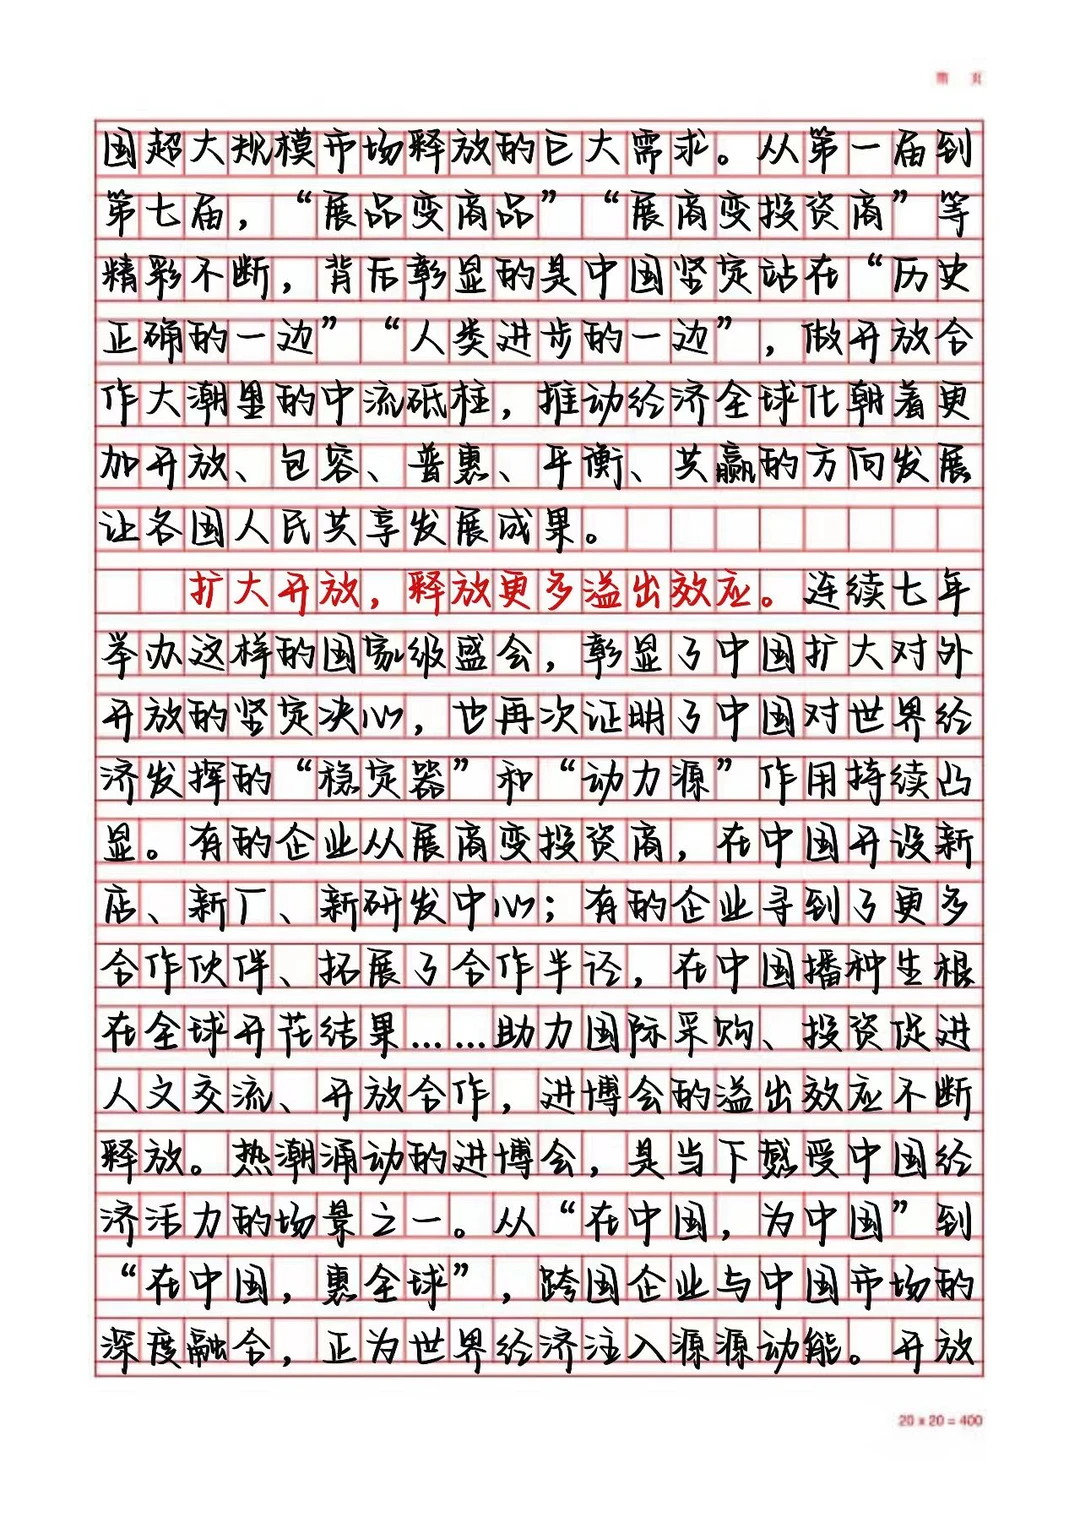 第 页
国超大规模市场释放的巨大需求。从第一届到
第七届，“展品变商品”“展商变投资商”等
精彩不断，背后彰显的是中国坚定站在“历史
正确的一边”“人类进步的一边”，做开放合
作大潮里的中流砥柱，推动经济全球化朝着更
加开放、包容、普惠、平衡、共赢的方向发展
让各国人民共享发展成果。
扩大开放，释放更多溢出效应。连续七年
举办这样的国家级盛会，彰显了中国扩大对外
开放的坚定决心，也再次证明了中国对世界经
济发挥的“稳定器”和“动力源”作用持续凸
显。有的企业从展商变投资商，在中国开设新
店、新厂、新研发中心；有的企业寻到了更多
合作伙伴、拓展了合作半径，在中国播种生根
在全球开花结果……助力国际采购、投资促进
人文交流、开放合作，进博会的溢出效应不断
释放。热潮涌动的进博会，是当下感受中国经
济活力的场景之一。从“在中国，为中国”到
“在中国，惠全球”，跨国企业与中国市场的
深度融合，正为世界经济注入源源动能。开放
20 x 20 = 400